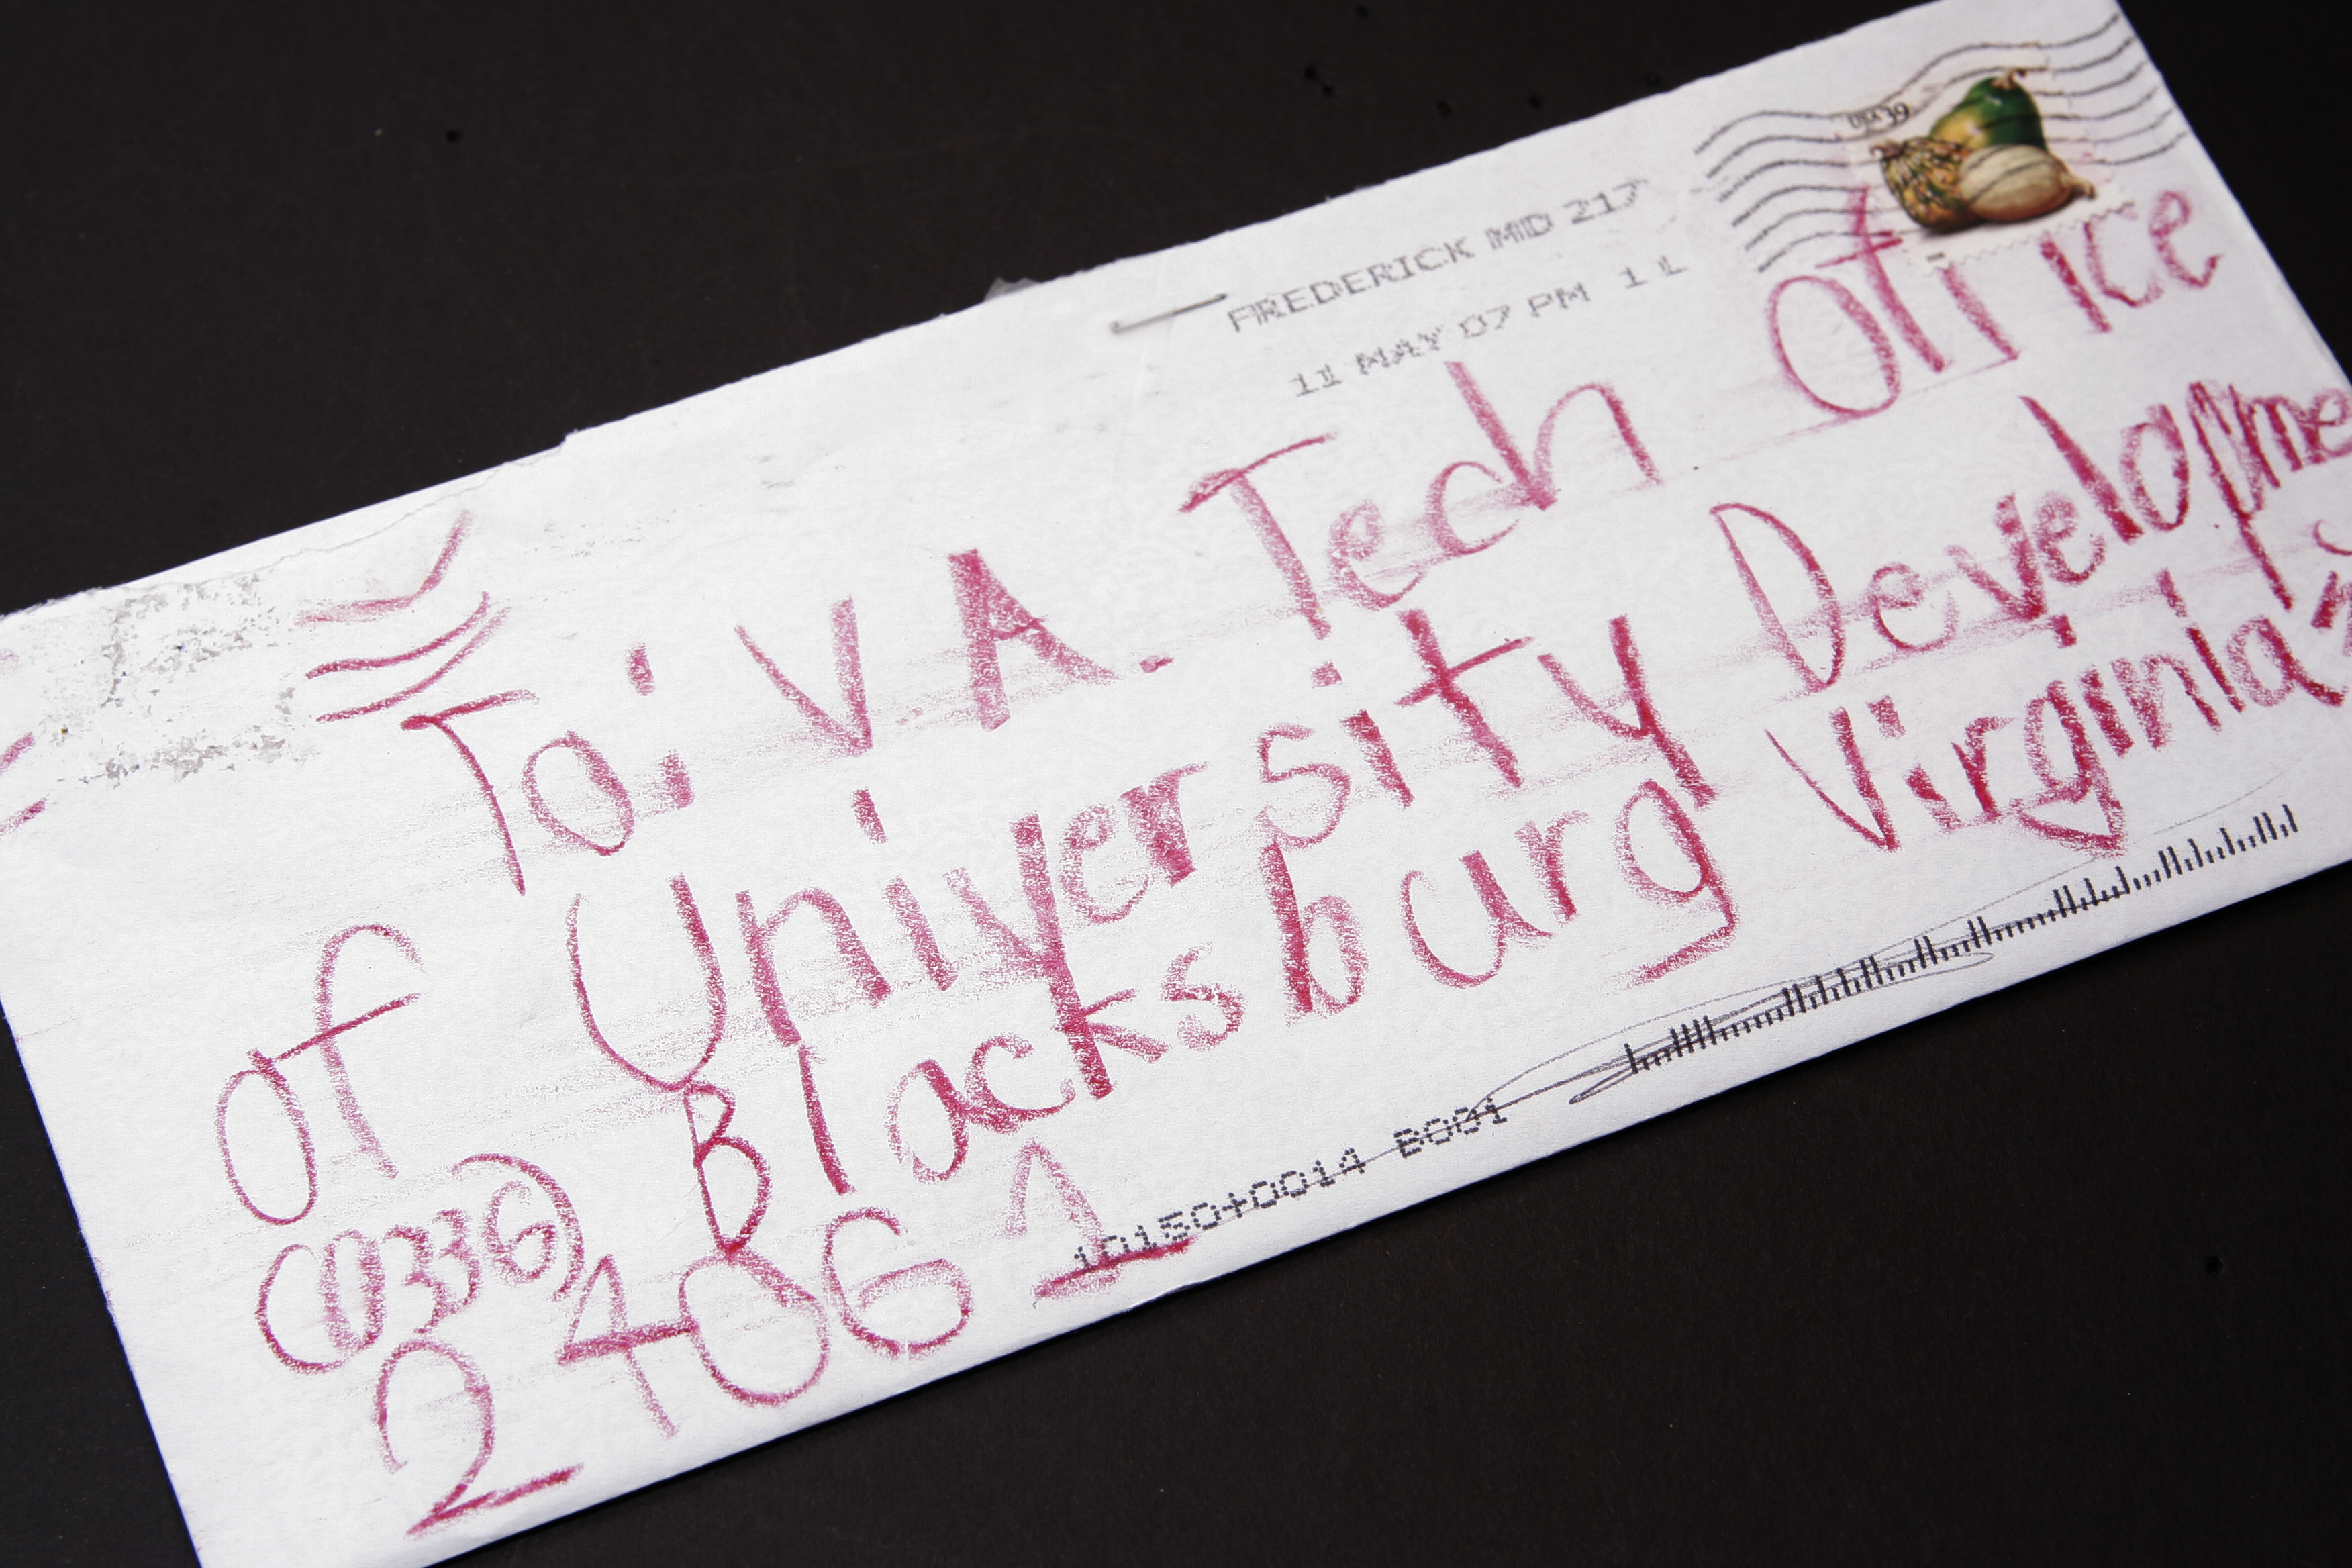 USA 39
FREDERICK MD 217
11 MAY 07 PM 1 L
To: VA. Tech office
of University Developme
Blacksburg Virginia
(0336)
24061
10150+0014 B001